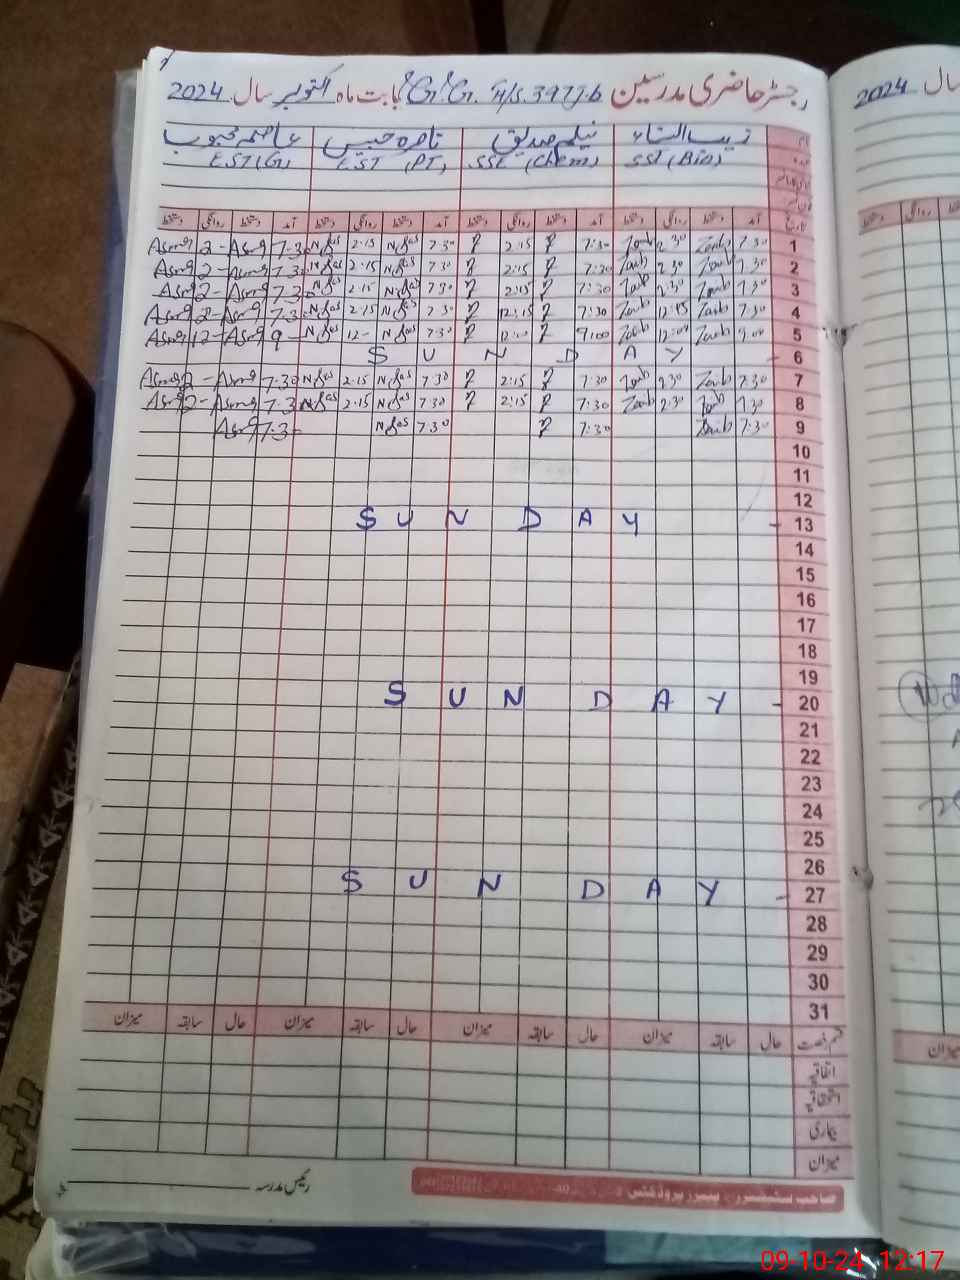 رجسٹر حاضری مدرسین G.G. H/S 397J.b بابت ماہ اکتوبر سال 2024
زیب النساء نیلم صدیق ناصرہ عاصمہ محبوب
SST (Bio) SST (Chem) EST (PT) EST (G)
تاریخ آمد دستخط روانگی دستخط آمد دستخط روانگی دستخط آمد دستخط روانگی دستخط آمد دستخط روانگی دستخط
1 7:30 Zaib 2:30 Zaib 7:30 2:15 7:30 Nafas 2:15 Nafas 7:30 Asma 2- Asma
2 7:30 Zaib 2:30 Zaib 7:30 2:15 7:30 Nafas 2:15 Nafas 7:30 Asma 2- Asma
3 7:30 Zaib 2:30 Zaib 7:30 2:15 7:30 Nafas 2:15 Nafas 7:30 Asma 2- Asma
4 7:30 Zaib 12:15 Zaib 7:30 12:15 7:30 Nafas 2:15 Nafas 7:30 Asma Asma
5 9:00 Zaib 12:00 Zaib 9:00 12:00 7:30 Nafas 12- Nafas 9- Asma 12- Asma
6 - SUNDAY
7 7:30 Zaib 2:30 Zaib 7:30 2:15 7:30 Nafas 2:15 Nafas 7:30 Asma 2- Asma
8 7:30 Zaib 2:30 Zaib 7:30 2:15 7:30 Nafas 2:15 Nafas 7:30 Asma 2- Asma
9 7:30 Zaib 7:30 7:30 Nafas 7:30 Asma
10
11
12
13 - SUNDAY
14
15
16
17
18
19
20 - SUNDAY
21
22
23
24
25
26
27 - SUNDAY
28
29
30
31
قسم رخصت حال سابقہ میزان حال سابقہ میزان حال سابقہ میزان حال سابقہ میزان
اتفاقیہ
استحقاقیہ
بیماری
میزان
رئیس مدرسہ
صاحب سٹیشنرز پیپر پروڈکٹس
سال 2024
دستخط روانگی
میزان
09-10-24 12:17